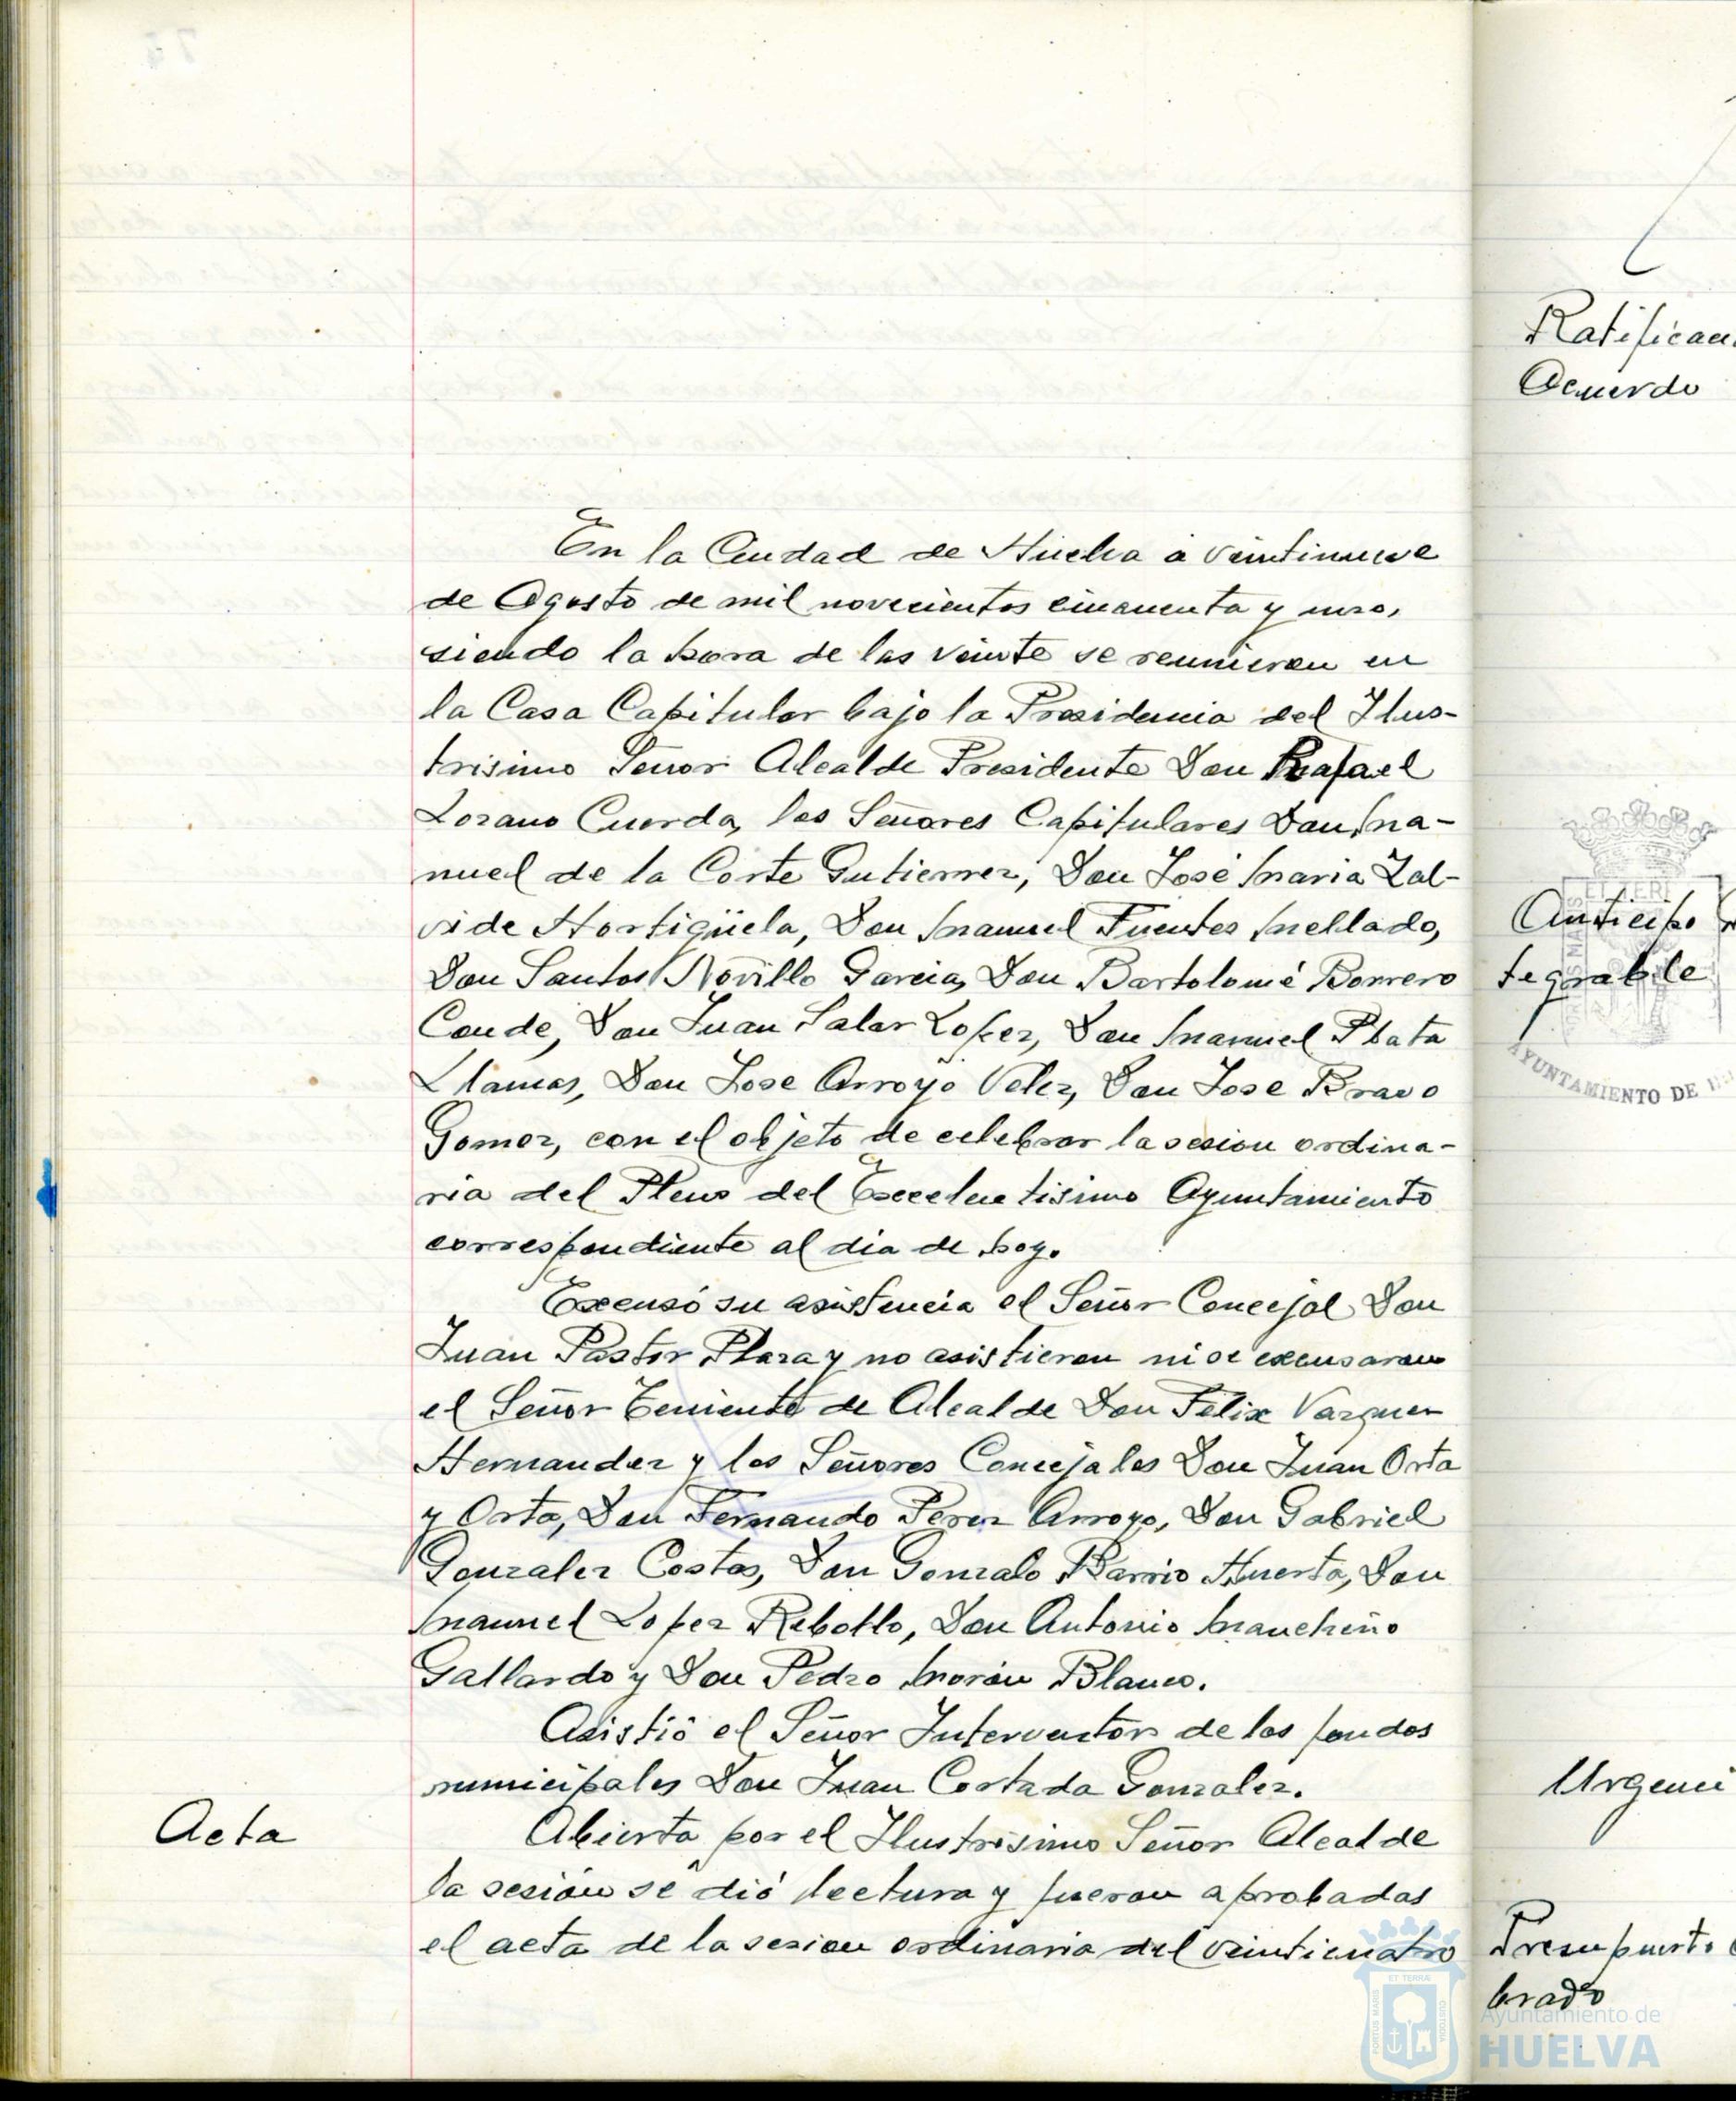 En la Ciudad de Huelva a veintinueve
de Agosto de mil novecientos cincuenta y uno,
siendo la hora de las veinte se reunieron en
la Casa Capitular bajo la Presidencia del Ilus-
trisimo Señor Alcalde Presidente Don Rafael
Lozano Cuerda, los Señores Capitulares Don Ma-
nuel de la Corte Gutierrez, Don José Maria Zal-
vide Hortigüela, Don Manuel Fuentes Mellado,
Don Santos Novillo Garcia, Don Bartolomé Borrero
Conde, Don Juan Salar Lopez, Don Manuel Plata
Llamas, Don Jose Arroyo Velez, Don Jose Bravo
Gomez, con el objeto de celebrar la sesion ordina-
ria del Pleno del Excelentisimo Ayuntamiento
correspondiente al dia de hoy.
Excusó su asistencia el Señor Concejal Don
Juan Pastor Plaza y no asistieron ni se excusaron
el Señor Teniente de Alcalde Don Felix Vazquez
Hernandez y los Señores Concejales Don Juan Orta
y Orta, Don Fernando Perez Arroyo, Don Gabriel
Gonzalez Costas, Don Gonzalo Barrio Huerta, Don
Manuel Lopez Rebollo, Don Antonio Mancheño
Gallardo y Don Pedro Morón Blanco.
Asistió el Señor Interventor de los fondos
municipales Don Juan Cortada Gonzalez.
Acta
Abierta por el Ilustrisimo Señor Alcalde
la sesión se dió lectura y fueron aprobadas
el acta de la sesion ordinaria del veinticuatro
Acuerdo
Anticipo
tegrable
AYUNTAMIENTO DE
brado
ET TERRÆ
PORTUS MARIS
CUSTODIA
Ayuntamiento de
HUELVA